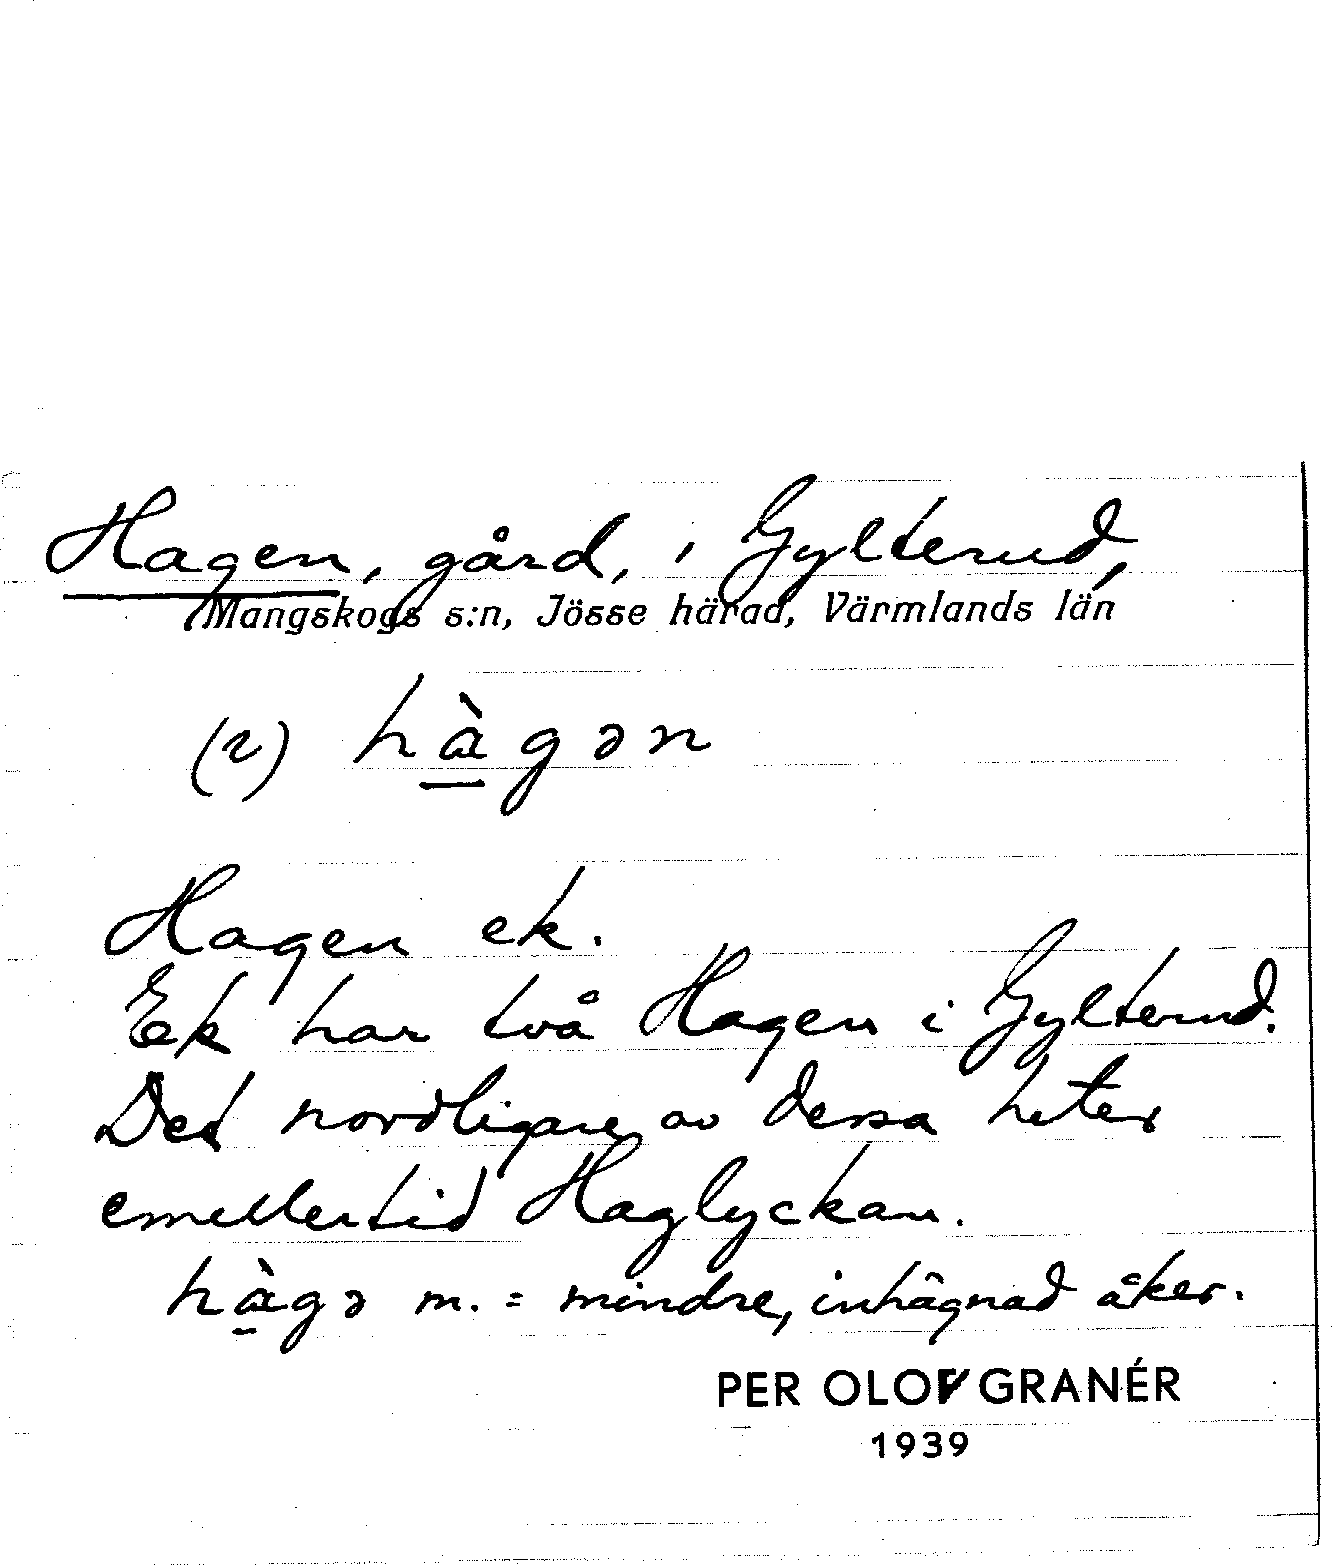 Hagen, gård, i Gylterud,
Mangskogs s:n, Jösse härad, Värmlands län
(2) hàgən
Hagen ek.
Ek har två Hagen i Gylterud.
Det nordligare av dessa heter
emellertid Haglyckan.
hàgə m. = mindre, inhägnad åker.
PER OLOV GRANÉR
1939